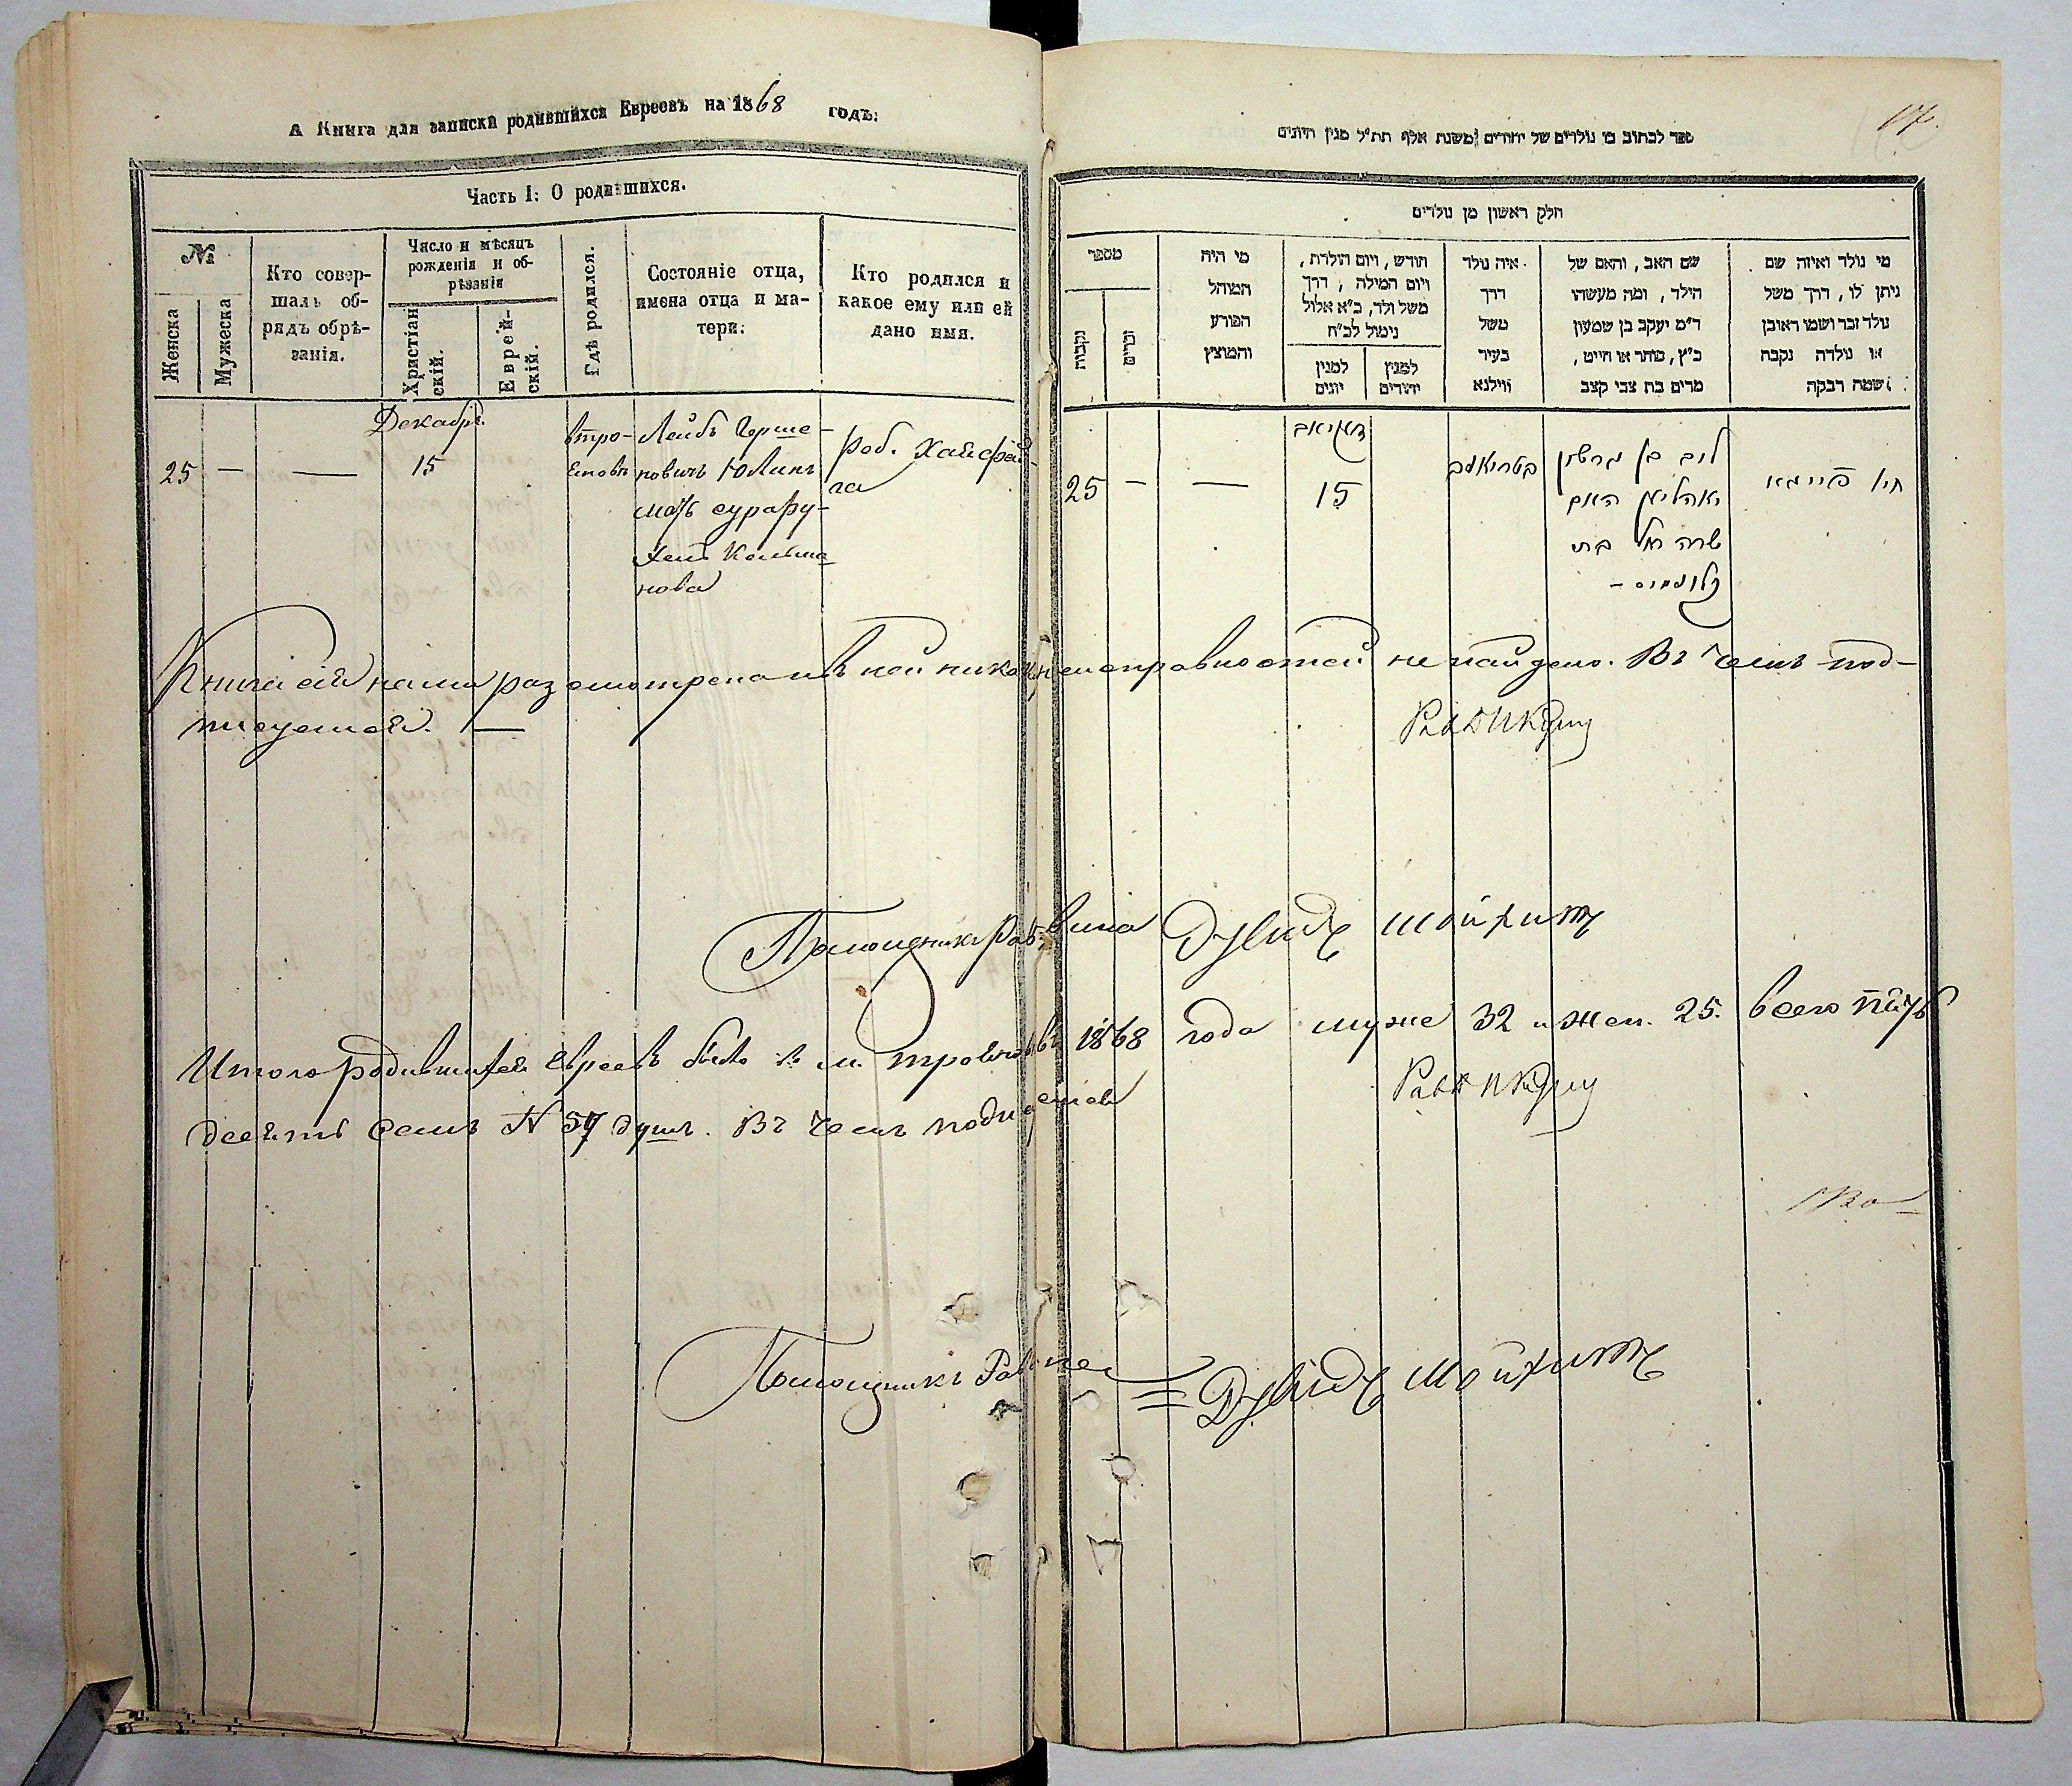 А Книга для записки родившихся Евреевъ на 1868 годъ:
Часть I: О родившихся.
№
Женска
Мужеска
Кто совер-
шалъ об-
рядъ обрѣ-
занія.
Число и мѣсяцъ
рожденія и об-
рѣзанія
Христіан
скій.
Еврей-
скій.
Гдѣ родился.
Состояніе отца,
имена отца и ма-
тери:
Кто родился и
какое ему или ей
дано имя.
Декабр.
25 — — 15
втро-
Лейбъ Герше-
новичъ Юлинъ
мать сура
Кельма-
нова
род. Хайафей-
га
17.
ספר לכתוב בו נולדים של יהודים משנת אלף תת״ל מנין היונים
חלק ראשון מן נולדים
מספר
נקבות
זכרים
מי היה
המוהל
הפורע
והמוצץ
חודש, ויום הולדת,
ויום המילה, דרך
משל ולד, כ״א אלול
נימול לכ״ח
למנין
יונים
למנין
יהודים
איה נולד
דרך
משל
בעיר
ווילנא
שם האב, והאם של
הילד, ומה מעשהו
ר״מ יעקב בן שמעון
כ״ץ, סוחר או חייט,
מרים בת צבי קצב
מי נולד ואיזה שם
ניתן לו, דרך משל
נולד זכר ושמו ראובן
או נולדה נקבה
ושמה רבקה
25 — — 15
ליב בן גרשון
האם
שרה בת
חיה פייגא
Книга сія нами разсмотрена и въ ней никак. неисправностей не найдено. Въ чемъ под-
писуемся. —
Помощникъ Раввина Дувидъ
Итого родившихся евреевъ было в м. 1868 года муже 32 и жен. 25. всего пять
десятъ семъ № 57 душъ. Въ чемъ подписуемся
Помощникъ Раввина Дувидъ